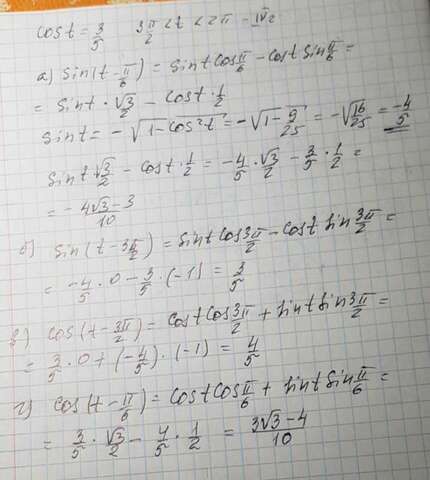 cos t = 3/5   3π/2 < t < 2π - IV г
а) sin(t - π/6) = sin t cos π/6 - cos t sin π/6 =
= sin t · √3/2 - cos t · 1/2
sin t = - √(1 - cos² t) = - √(1 - 9/25) = - √(16/25) = -4/5
sin t √3/2 - cos t · 1/2 = - 4/5 · √3/2 - 3/5 · 1/2 =
= -4√3 - 3/10
б) sin(t - 3π/2) = sin t cos 3π/2 - cos t sin 3π/2 =
= - 4/5 · 0 - 3/5 · (-1) = 3/5
в) cos(t - 3π/2) = cos t cos 3π/2 + sin t sin 3π/2 =
= 3/5 · 0 + (-4/5) · (-1) = 4/5
г) cos(t - π/6) = cos t cos π/6 + sin t sin π/6 =
= 3/5 · √3/2 - 4/5 · 1/2 = 3√3 - 4/10